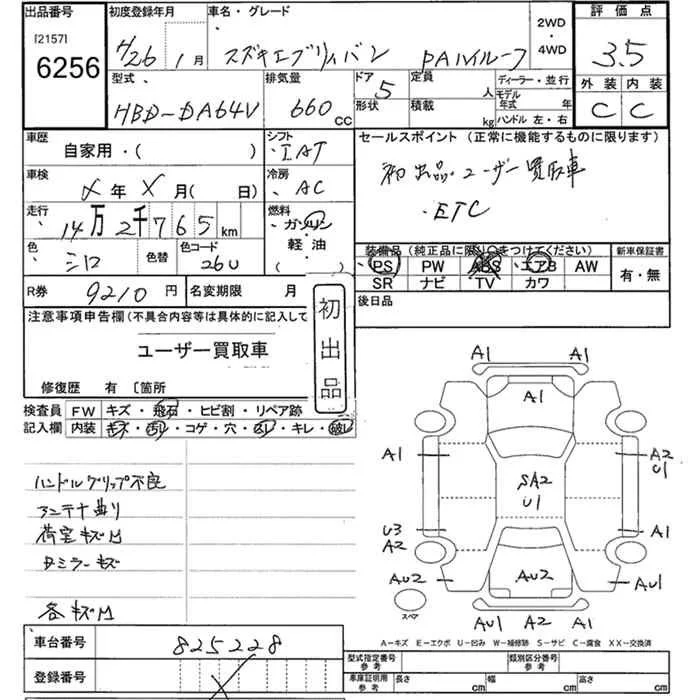 出品番号 初度登録年月 車名・グレード 2WD・4WD 評価点
[2157]
6256
H26 1月 スズキエブリィバン PAハイルーフ 3.5
型式 排気量 ドア 定員 人 ディーラー・並行 外装 内装
HBD-DA64V 660 CC 5 形状 積載 kg モデル年式 年 ハンドル 左・右 C C
車歴 自家用・( ) シフト ・IAT セールスポイント(正常に機能するものに限ります)
車検 メ年 X月( 日) 冷房 ・AC 初出品・ユーザー買取車
走行 14万2千765km 燃料 ・ガソリン ・軽油 ( ) ・ETC
色 シロ 色替 色コード 26U 装備品(純正品に限り○をつけてください) 新車保証書
PS PW ABS エアB AW 有・無
SR ナビ TV カワ
R券 9210円 名変期限 月 後日品
注意事項申告欄(不具合内容等は具体的に記入して
初出品
ユーザー買取車
修復歴 有 〔箇所
検査員 FW キズ・飛石・ヒビ割・リペア跡
記入欄 内装 キズ・汚レ・コゲ・穴・スレ・キレ・破レ
ハンドルグリップ不良
アンテナ曲り
荷室キズ凹
Dミラーキズ
各キズ凹
A1 A1
A1
A1 A2
U1
SA2
U1
U3
A2
A1
AU2 AU2 AU1
スペア
AU1 A2 A1
A-キズ E-エクボ U-凹み W-補修跡 S-サビ C-腐食 XX-交換済
車台番号 825228
登録番号
型式指定番号 参考 類別区分番号 参考
車庫証明用 参考 長さ cm 幅 cm 高さ cm